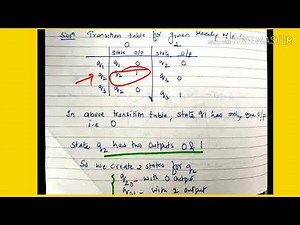 Solⁿ Transition table for given Mealy m/c:
0 1
State O/P State O/P
q1 q1 0
→ q2 q2 1 0
q3 q2 0 1
In above transition table, State q1 has only one O/P
i.e 0
State q2 has two outputs 0 & 1
So we create 2 states for q2
q20 - with 0 output
with 1 output